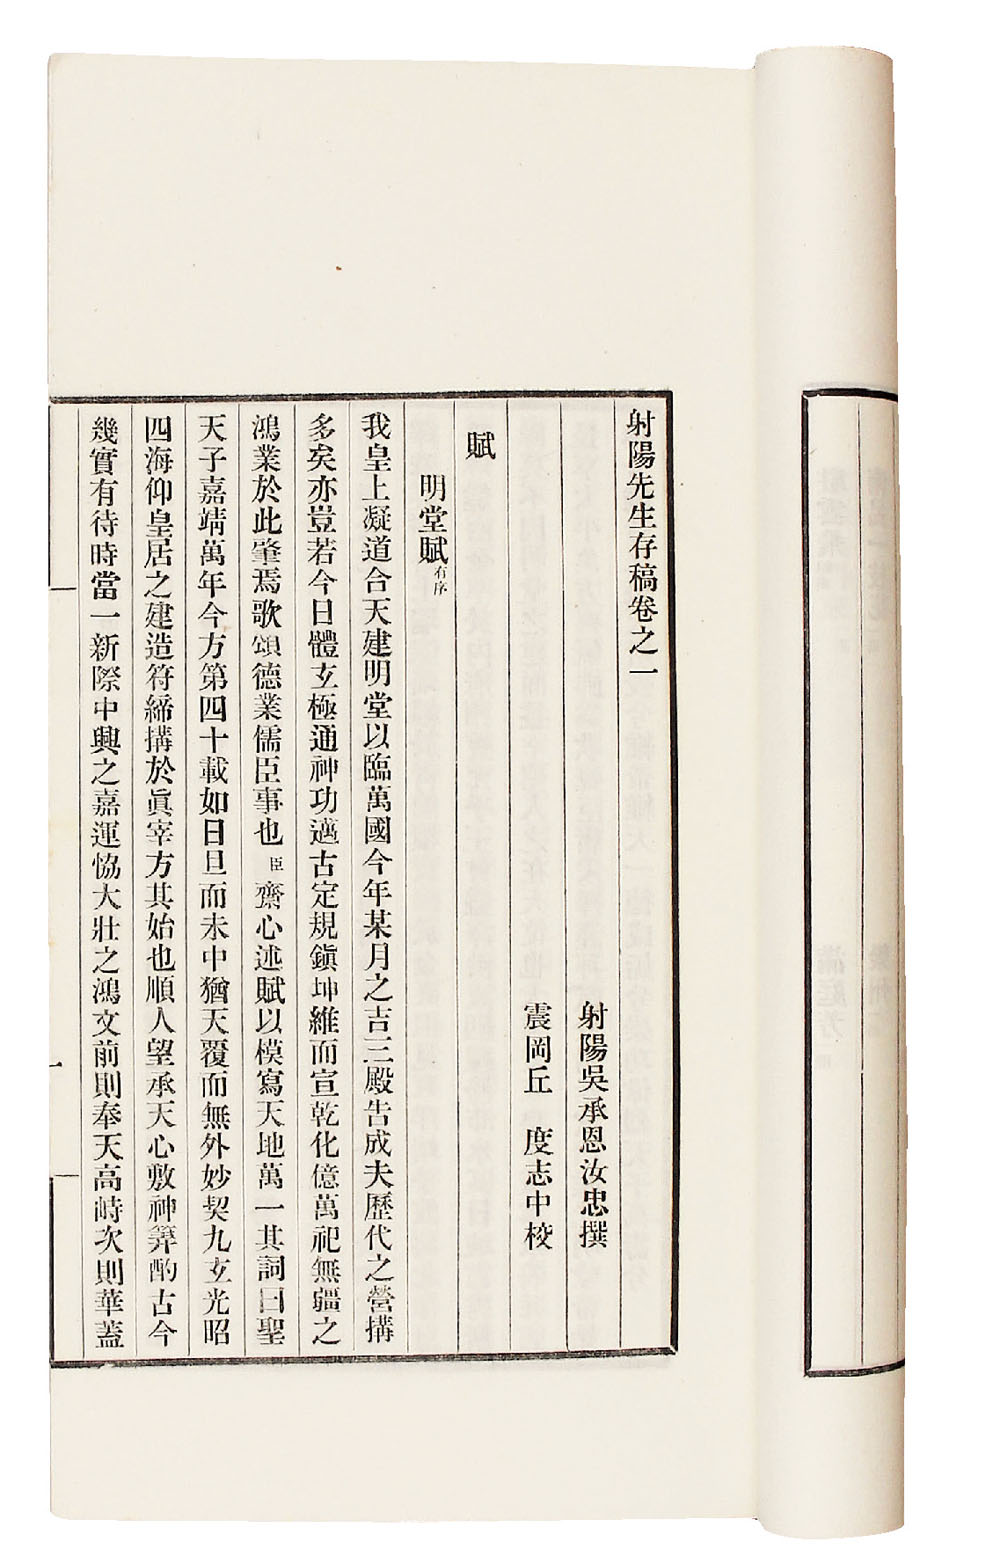 射陽先生存稿卷之一
射陽吳承恩汝忠撰
震岡丘　度志中校
賦
明堂賦有序
我皇上凝道合天建明堂以臨萬國今年某月之吉三殿告成夫歷代之營搆
多矣亦豈若今日體玄極通神功邁古定規鎮坤維而宣乾化億萬祀無疆之
鴻業於此肇焉歌頌德業儒臣事也臣齋心述賦以模寫天地萬一其詞曰聖
天子嘉靖萬年今方第四十載如日旦而未中猶天覆而無外妙契九玄光昭
四海仰皇居之建造符締搆於眞宰方其始也順人望承天心敷神筭酌古今
幾實有待時當一新際中興之嘉運恊大壯之鴻文前則奉天高峙次則華蓋
一